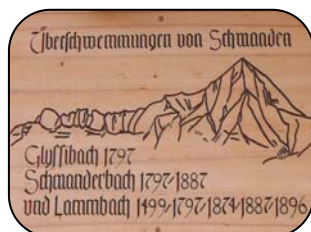 Überschwemmungen von Schwanden
Glyssibach 1797
Schwanderbach 1797/1887
und Lammbach 1499/1797/1874/1887/1896